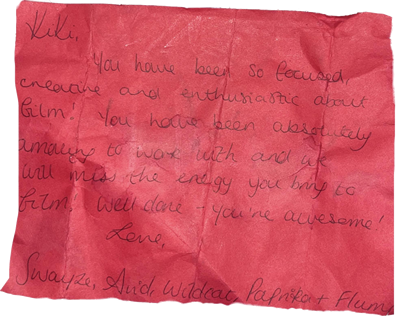 Kiki,
You have been so focused,
creative and enthusiastic about
film! You have been absolutely
amazing to work with and we
will miss the energy you bring to
film! Well done - you're awesome!
Love,
Swayze, Wildcat, Paprika + Flume